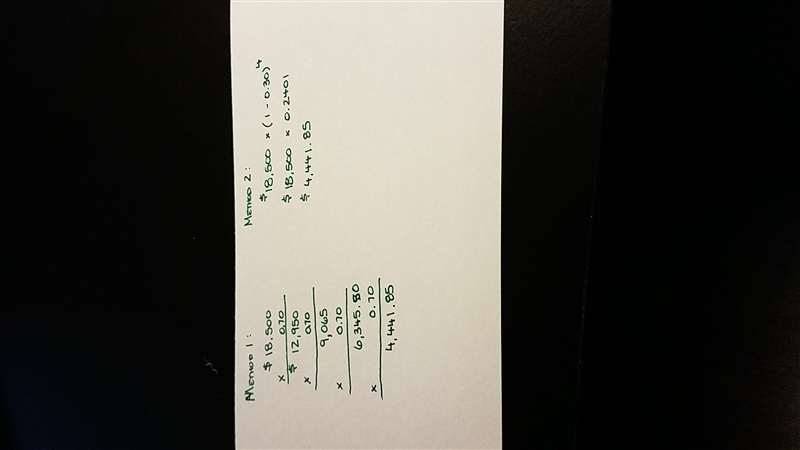 METHOD 1:
$ 18,500
x 0.70
$ 12,950
x 0.70
9,065
x 0.70
6,345.80
x 0.70
4,441.85
METHOD 2:
$ 18,500 x (1 - 0.30)⁴
$ 18,500 x 0.2401
$ 4,441.85